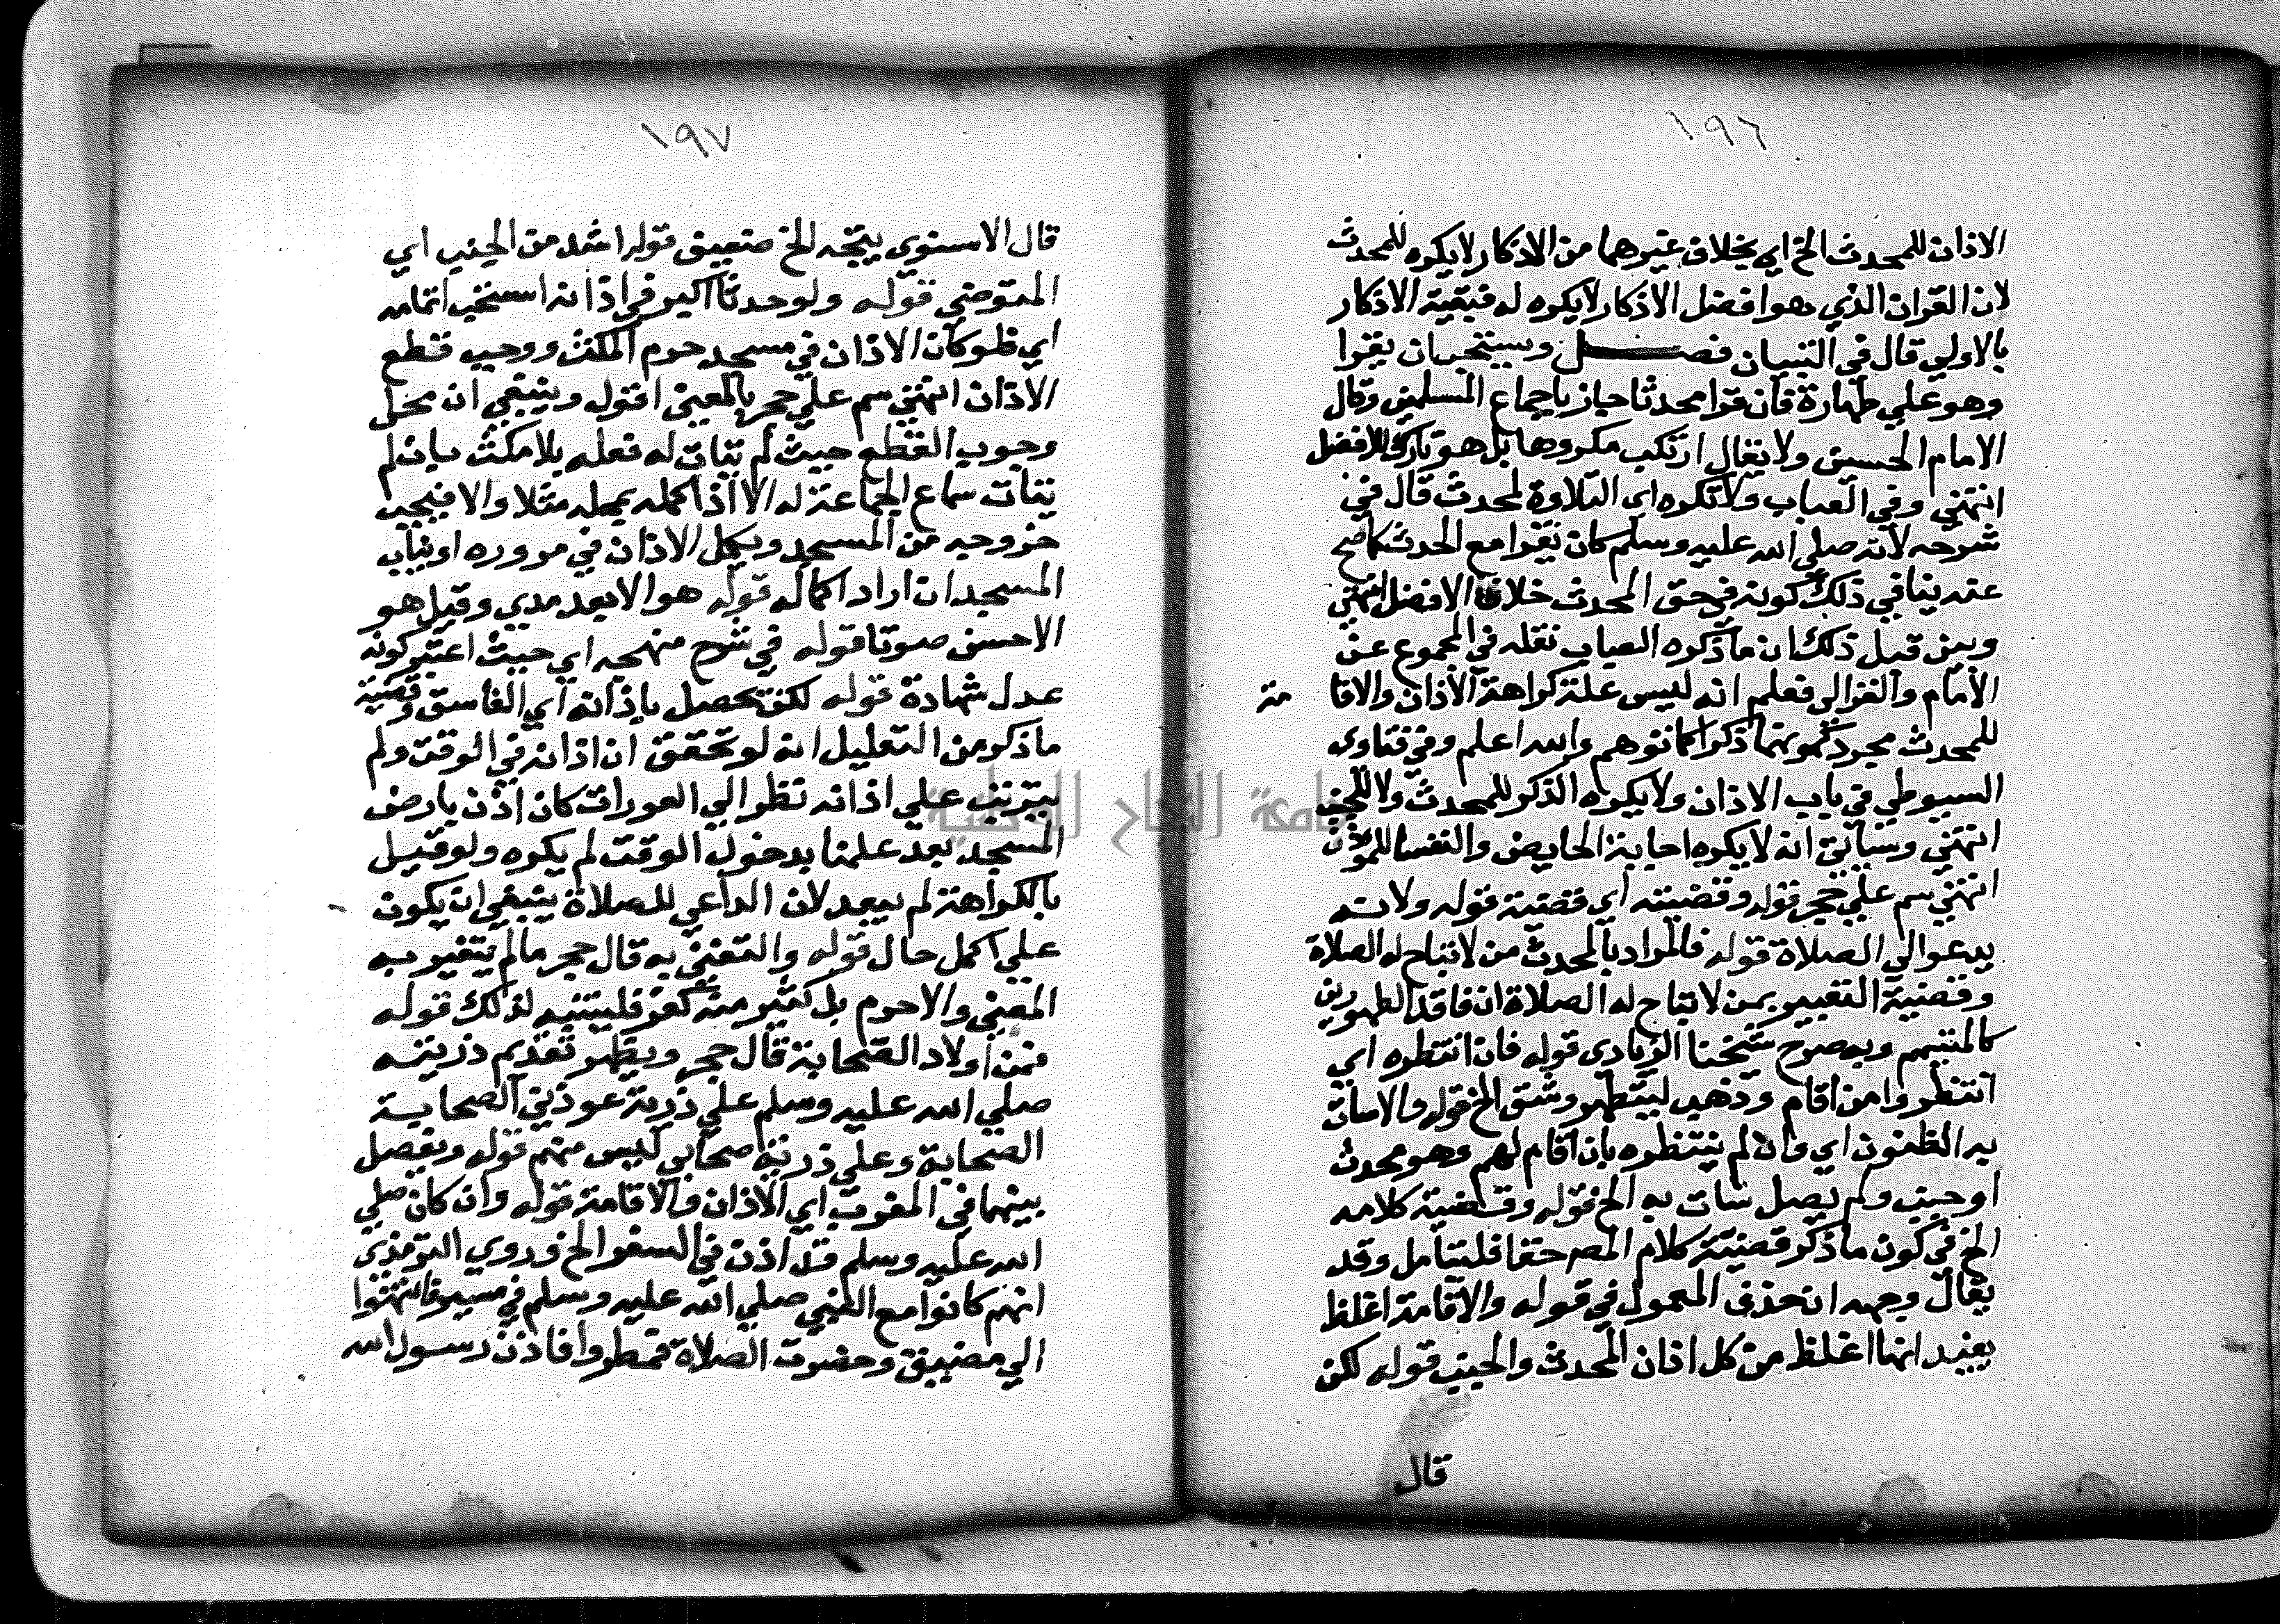 ١٩٦
الاذان للمحدث الخ اي بخلاف غيرهما من الاذكار لا يكره للمحدث
لان القران الذي هو افضل الاذكار لا يكره له فبقية الاذكار
بالاولي قال في التبيان فصل ويستحب ان يقرا
وهو علي طهارة فان قرا محدثا جاز باجماع المسلمين وقال
الامام الحسين ولا يقال ارتكب مكروها بل هو تارك للافضل
انتهي وفي العباب ولا تكره اي التلاوة لمحدث قال في
شرحه لانه صلي الله عليه وسلم كان يقرا مع الحدث كما صح
عنه ينافي ذلك كونه في حق المحدث خلاف الافضل انتهي
وبين قبل ذلك ان ما ذكره العباب نقله في المجموع عن
الامام والغزالي فعلم انه ليس علة كراهة الاذان والاقا مة
للمحدث مجرد كونهما ذكرا كما توهم والله اعلم وفي فتاوي
السيوطي في باب الاذان ولا يكره الذكر للمحدث ولا للجنب
انتهي وسياتي انه لا يكره اجابة الحايض والنفسا للموذن
انتهي سم علي حجر قوله وقضيته اي قضية قوله ولانه
يدعو الي الصلاة قوله فالمراد بالمحدث من لا تباح له الصلاة
وقضية التعبير بمن لا تباح له الصلاة ان فاقد الطهورين
كالمتيمم وبه صرح شيخنا الزيادي قوله فان انتظره اي
انتظروا من اقام وذهب ليتطهر وشق الخ قوله والاسات
به الظنون اي وان لم ينتظره بان اقام لهم وهو محدث
او جنب ولم يصل سات به الخ قوله وقضية كلامه
الخ في كون ما ذكر قضية كلام المص حقا فليتامل وقد
يقال وجهه ان حذف المعمول في قوله والاقامة اغلظ
يفيد انها اغلظ من كل اذان المحدث والجنب قوله لكن
قال
١٩٧
قال الاسنوي يتجه الخ ضعيف قوله اشد من الجنب اي
المتوضي قوله ولو حدث اكبر في اذانه استحب اتمامه
اي ظلو كان الاذان في مسجد حرم المكث ووجب قطع
الاذان انتهي سم علي حجر بالمعني اقول وينبغي ان محل
وجوب القطع حيث لم يتات له فعله بلا مكث بان لم
يتات سماع الجماعة له الا اذا كمله بمحله مثلا والا فيجب
خروجه من المسجد ويكمل الاذان في مروره او بباب
المسجد ان اراد اكماله قوله هو الابعد مدي وقيل هو
الاحسن صوتا قوله في شرح منهجه اي حيث اعتبر كونه
عدل شهادة قوله لكن تحصل باذانه اي الفاسق وقضية
ما ذكر من التعليل انه لو تحقق ان اذانه في الوقت ولم
يترتب علي اذانه نظر الي العورات كان اذن بارض
المسجد بعد علمنا بدخول الوقت لم يكره ولو قيل
بالكراهة لم يبعد لان الداعي للصلاة ينبغي ان يكون
علي اكمل حال قوله والتغني به قال حجر ما لم يتغير به
المعني والاحرم بل كثير منه كفر فليتنبه لذلك قوله
فمن اولاد الصحابة قال حجر ويظهر تقديم ذريته
صلي الله عليه وسلم علي ذرية موذني الصحابة
الصحابة وعلي ذرية صحابي ليس منهم قوله ويفصل
بينهما في المغرب اي الاذان والاقامة قوله وان كان صلي
الله عليه وسلم قد اذن في السفر الخ وروي الترمذي
انهم كانوا مع النبي صلي الله عليه وسلم في مسير فانتهوا
الي مضيق وحضرت الصلاة فمطروا فاذن رسول الله
جامعة النجاح الوطنية